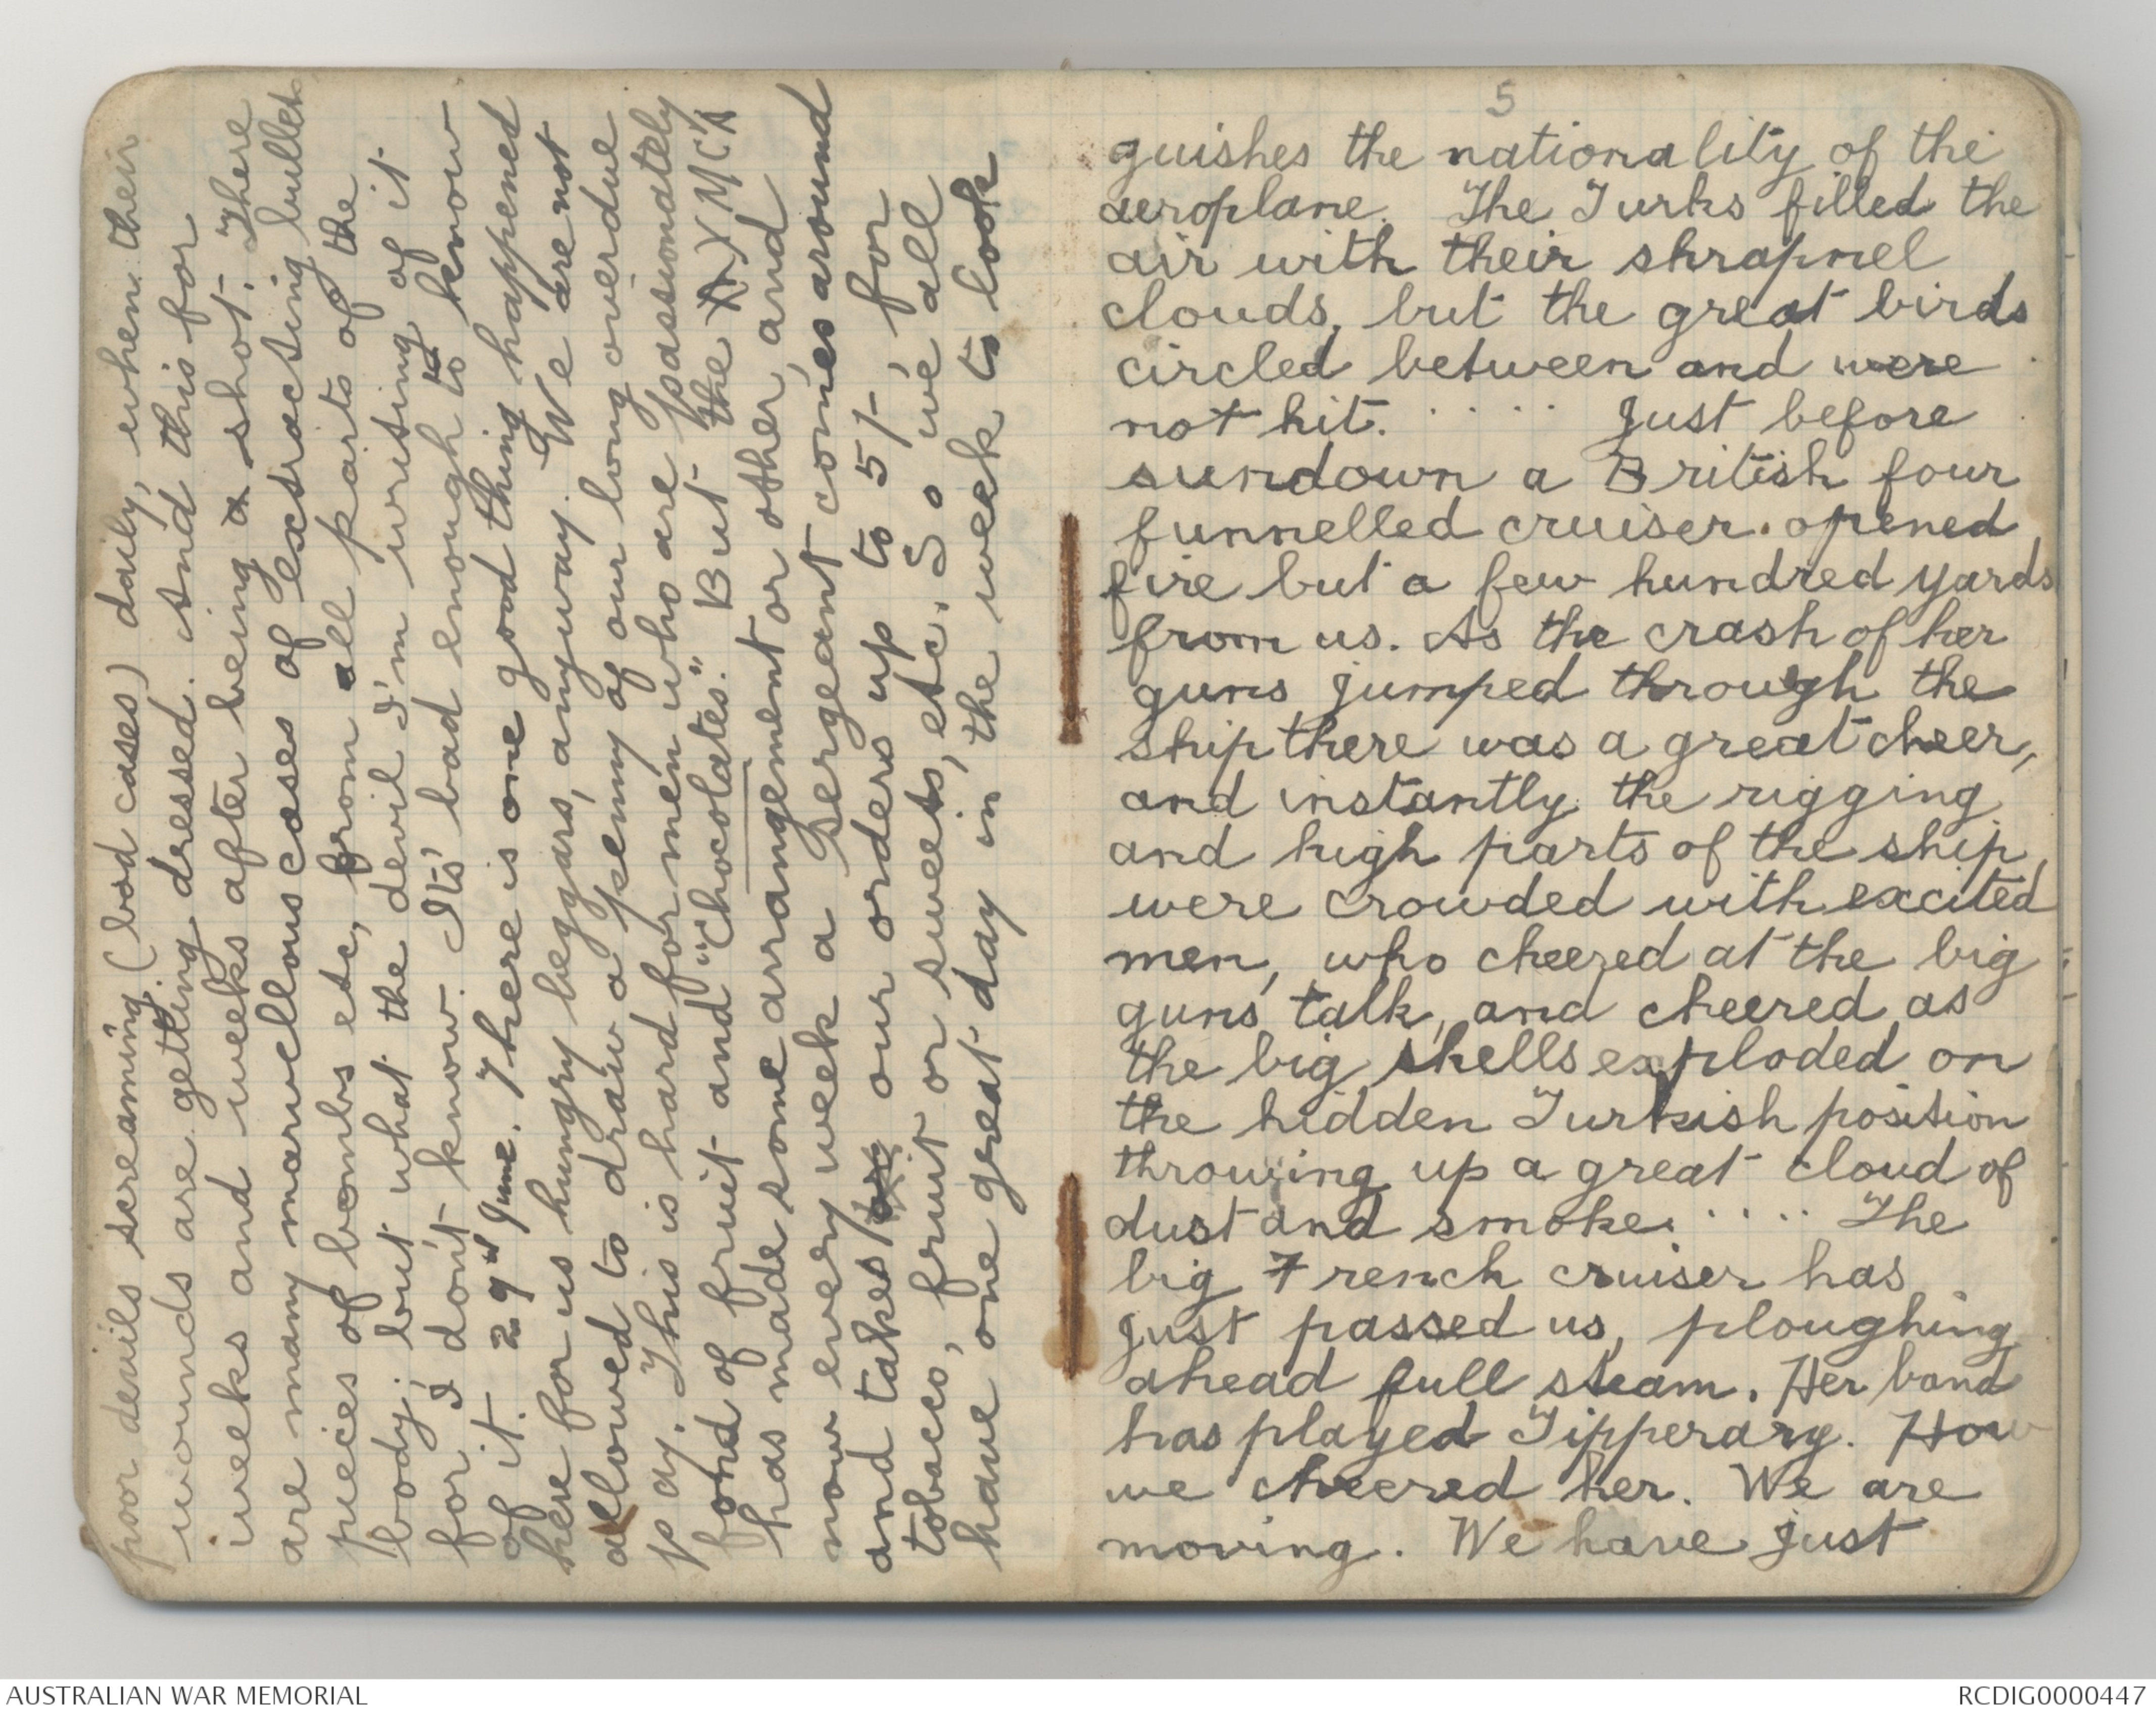 poor devils screaming (bad cases) daily, when their
wounds are getting dressed. And this for
weeks and weeks after being a shot. There
are many marvellous cases of extracting bullets
pieces of bombs etc, from all parts of the
body; but what the devil I'm writing of it
for, I don't know. It's bad enough to know
of it. 29th June. There is one good thing happened
here for us hungry beggars, anyway. We are not
allowed to draw a penny of our long overdue
pay. This is hard for men who are passionately
fond of fruit and "chocolates." But the YMCA
has made some arrangement or other, and
now every week a sergeant comes around
and takes our orders up to 5/-, for
tobacco, fruit or sweets, etc. So we all
have one great day in the week to look
5
guishes the nationality of the
aeroplane. The Turks filled the
air with their shrapnel
clouds, but the great birds
circled between and were
not hit. .... Just before
sundown a British four
funnelled cruiser opened
fire but a few hundred yards
from us. As the crash of her
guns jumped through the
ship there was a great cheer,
and instantly the rigging
and high parts of the ship
were crowded with excited
men, who cheered at the big
guns talk, and cheered as
the big shells exploded on
the hidden Turkish position
throwing up a great cloud of
dust and smoke. .... The
big French cruiser has
just passed us, ploughing
ahead full steam. Her band
has played Tipperary. How
we cheered her. We are
moving. We have just
AUSTRALIAN WAR MEMORIAL
RCDIG0000447